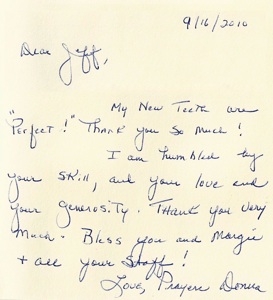 9/16/2010
Dear Jeff,
My New Teeth are
"Perfect!" Thank you so much!
I am humbled by
your skill, and your love and
your generosity. Thank you very
much. Bless you and Margie
+ all your Staff!
Love, Prayers Donna